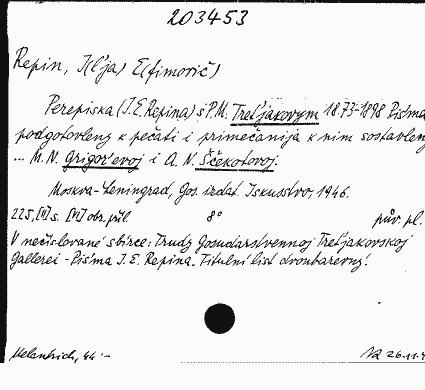 203453
Repin, I(l'ja) E(fimovič)
Perepiska (I. E. Repina) s P. M. Tret'jakovym 1873-1898 Pis'ma
podgotovleny k pečati i primečanija k nim sostavleny
... M. N. Grigor'evoj i A. N. Ščekotovoj.
Moskva-Leningrad, Gos. izdat. Iskusstvo, 1946.
225, [II] s. [VI] obr. příl 8° pův. pl.
V nečíslované sbírce: Trudy Gosudarstvennoj Tret'jakovskoj
Gallerei - Pis'ma I. E. Repina. Titulní list dvoubarevný.
Melantrich, 44.- 26.11.4